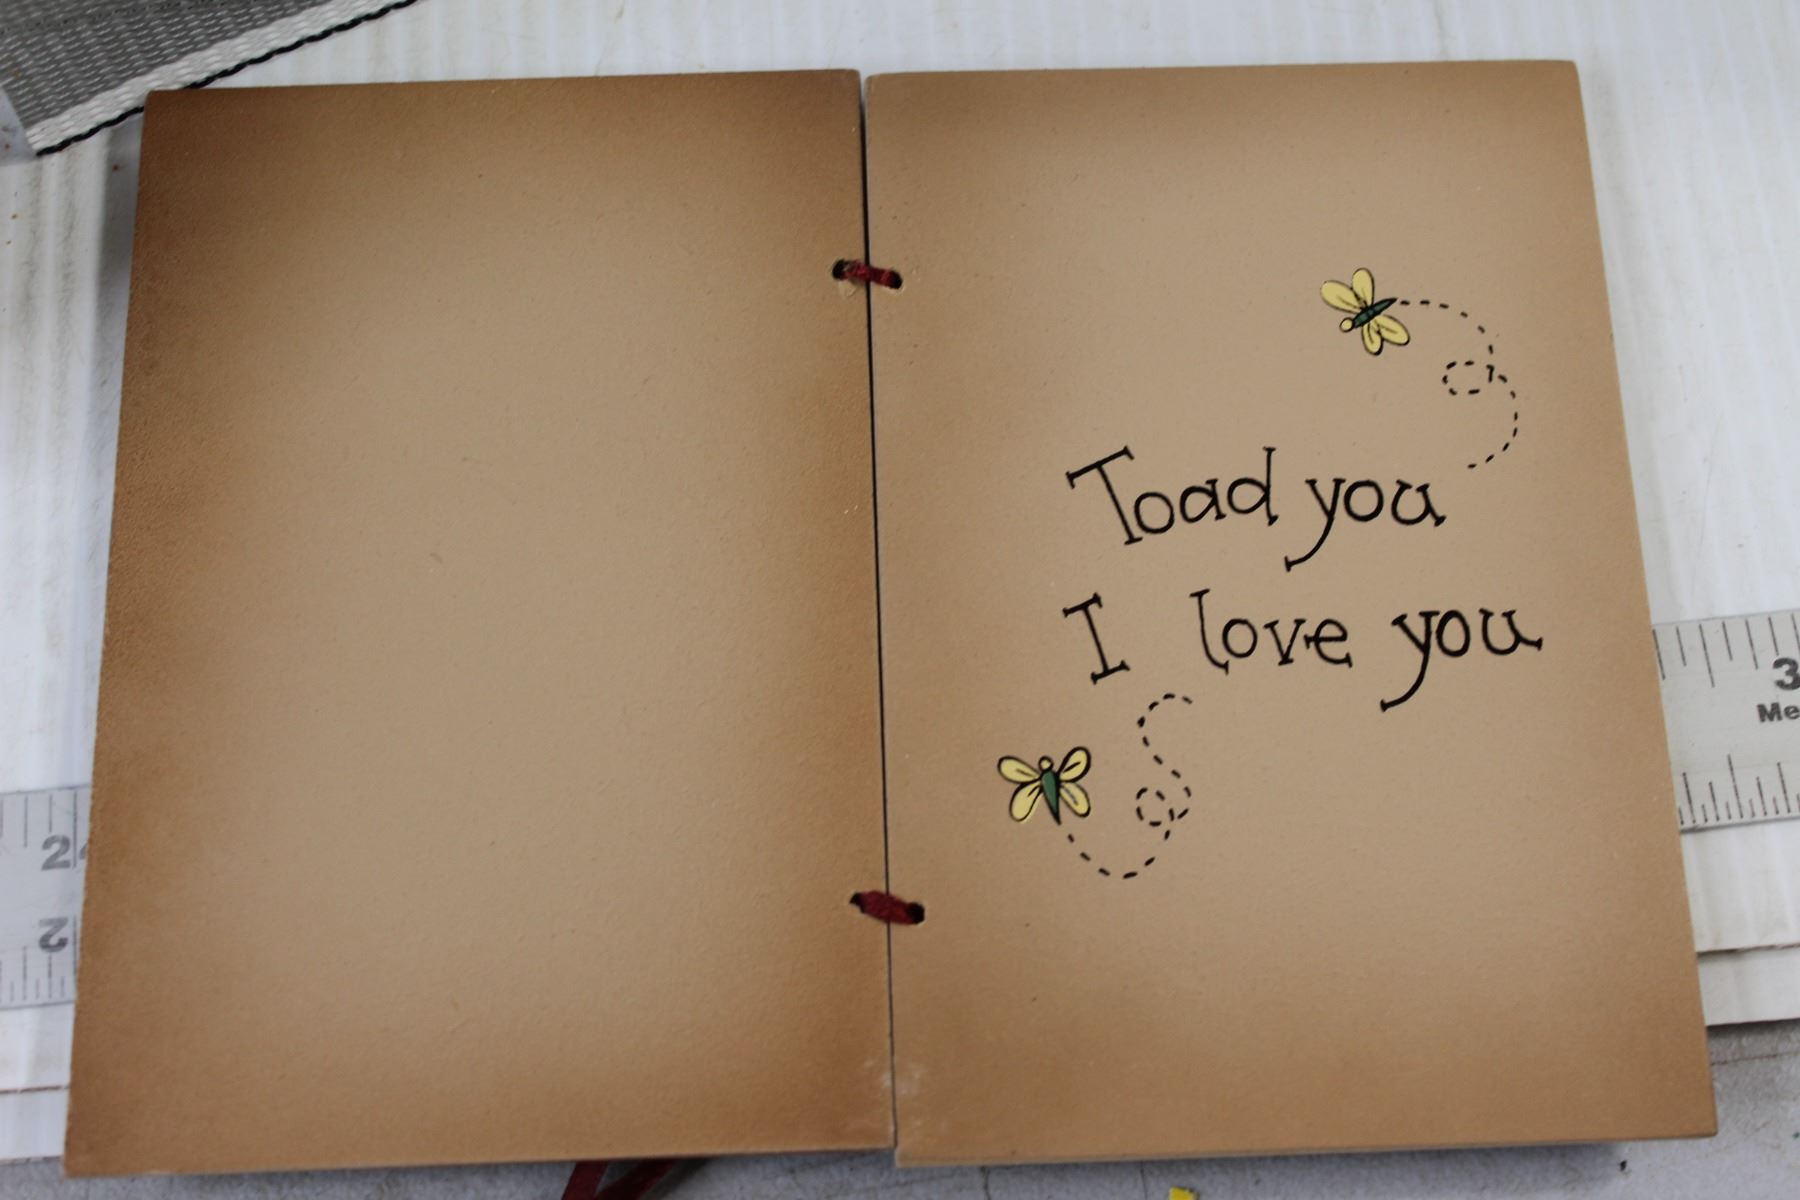 Toad you
I love you
2
2
3
Me